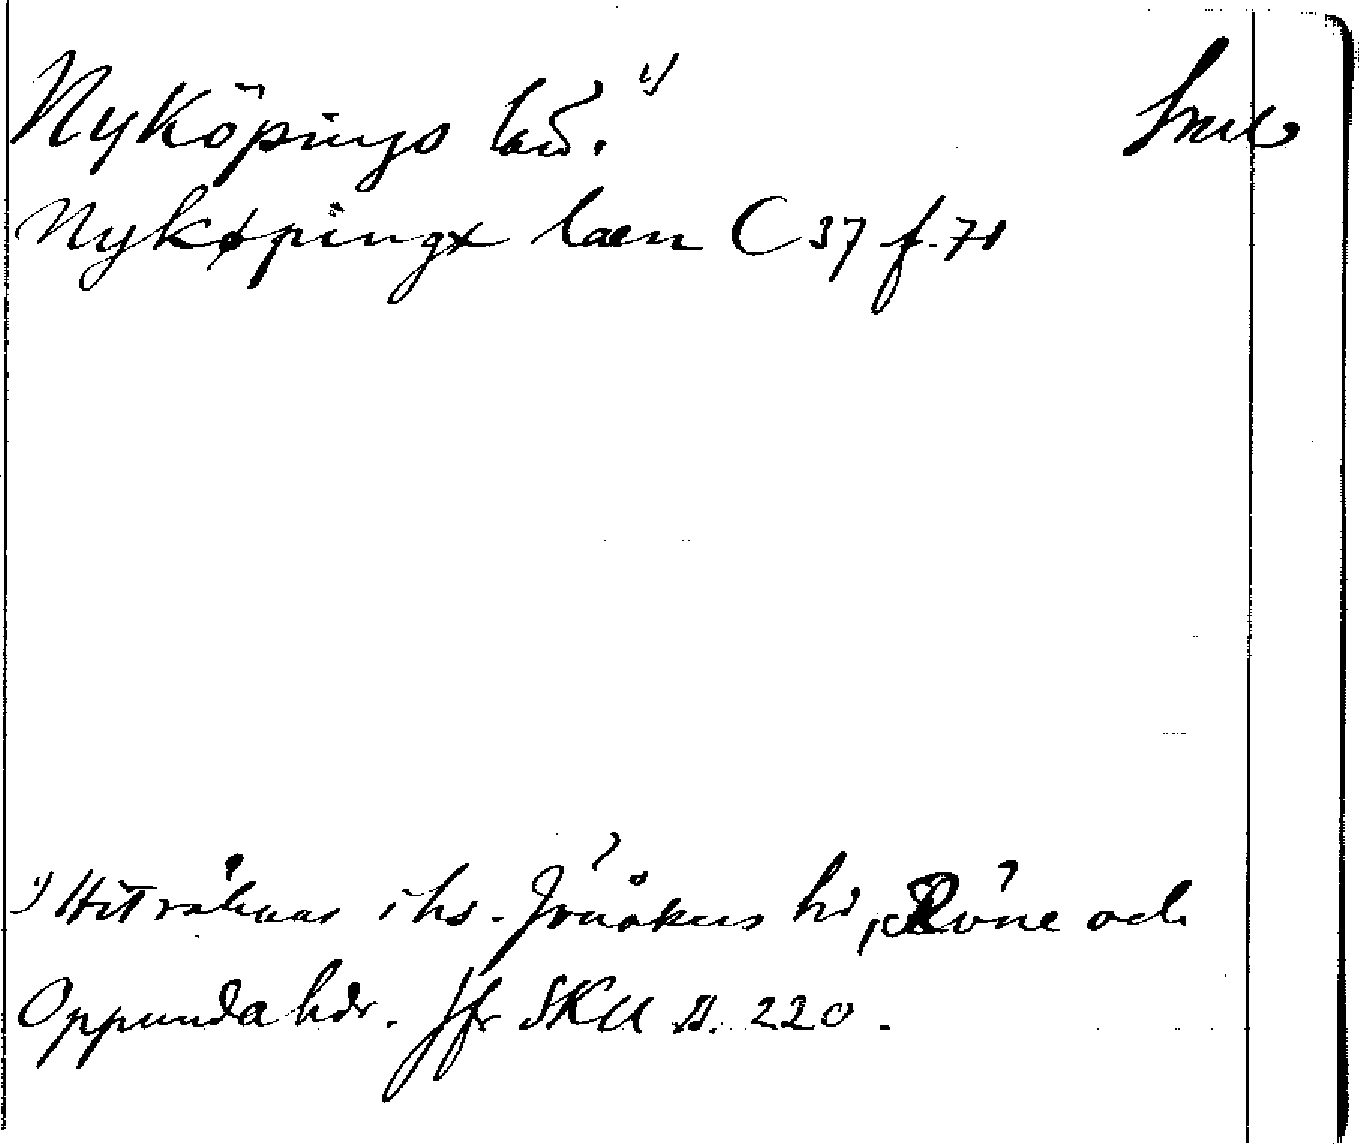 Nyköpings län. 1) Sml
Nykøpingx laen C 37 f. 71
1) Hit räknas i hs. Jönåkers hd, Röne och
Oppunda hdr. Jfr SKU s. 220.